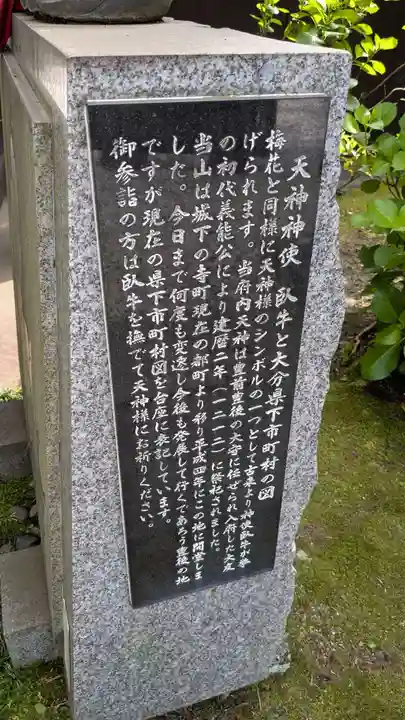 天神神使 臥牛と大分県下市町村の図
梅花と同様に天神様のシンボルの一つとして古来より神使臥牛が挙
げられます。当府内天神は豊前豊後の大守に任ぜられ入府した大友
の初代義能公により建暦二年(一二一二)に祭祀されました。
当山は城下の寺町現在の都町より移り平成四年にこの地に開堂しま
した。今日まで何度も変遷し今後も発展して行くであろう豊後の地
ですが現在の県下市町村図を台座に表記しています。
御参詣の方は臥牛を撫でて天神様にお祈りください。